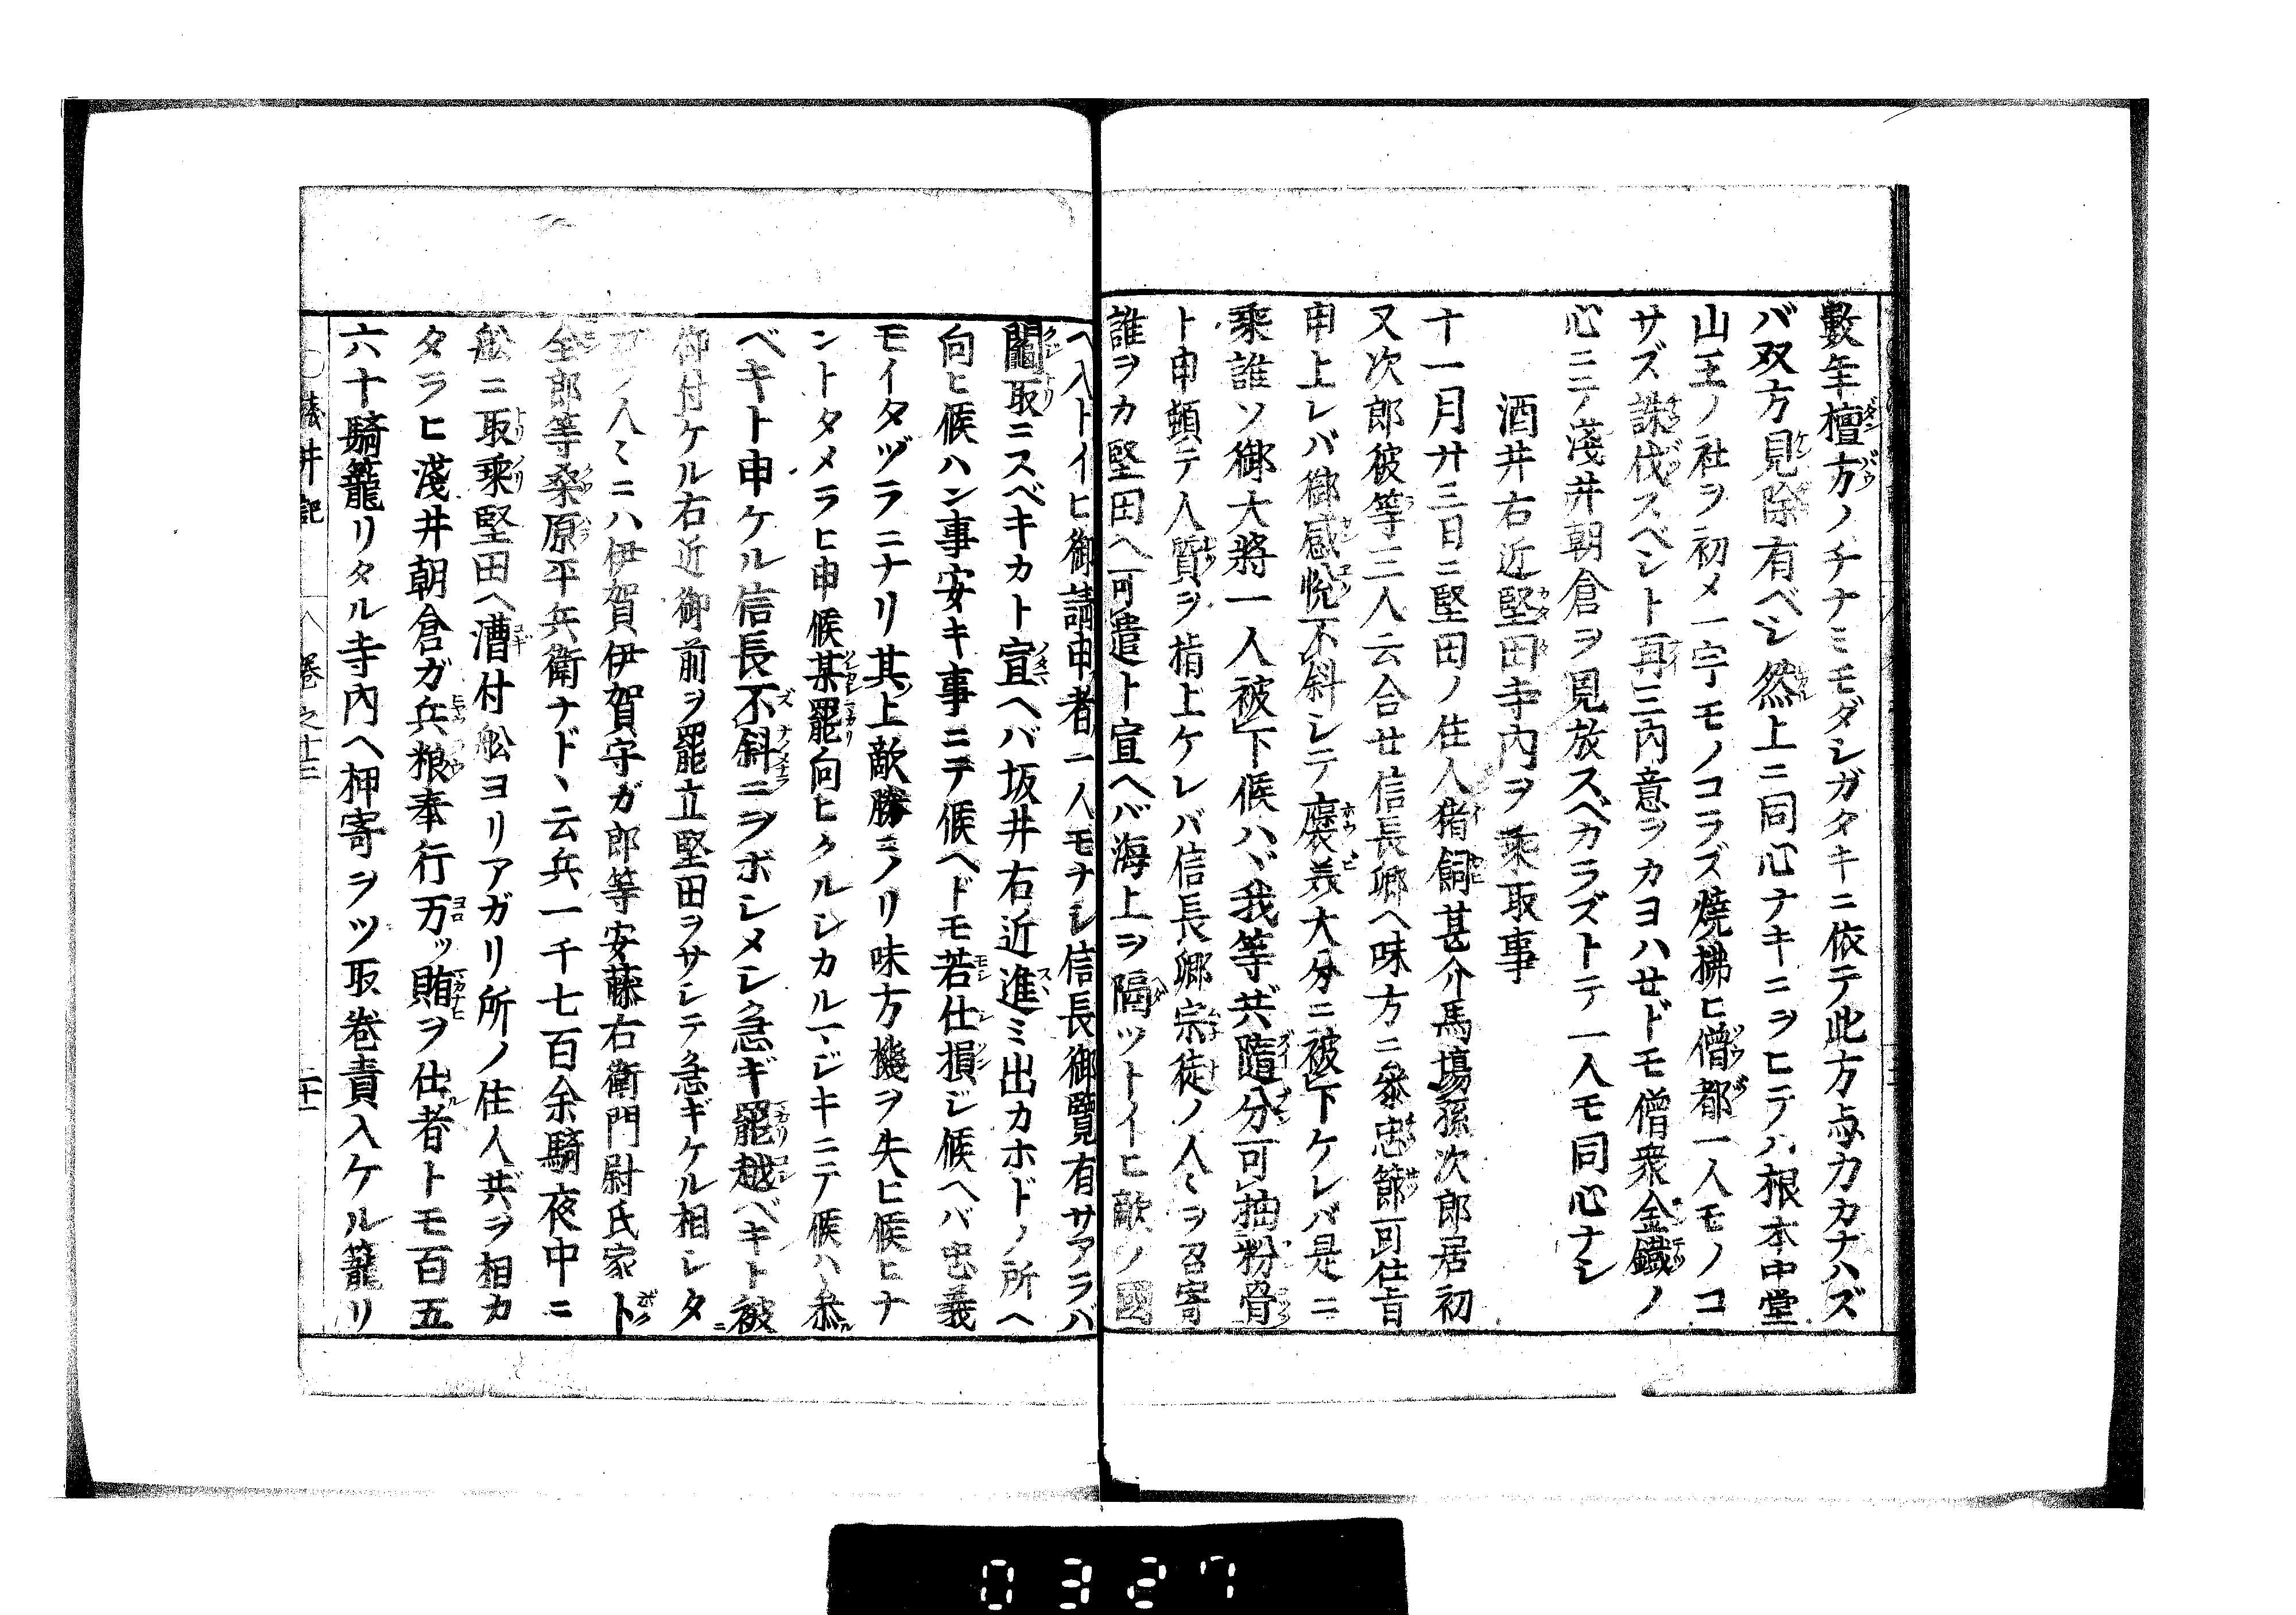 數年檀方ノチナミモダシガタキニ依テ此方与力カナハズ
バ双方見除有ベシ然上ニ同心ナキニヲヒテハ根本中堂
山王ノ社ヲ初メ一宇モノコラズ燒拂ヒ僧都一人モノコ
サズ誅伐スベシト再三內意ヲカヨハせドモ僧衆金鐵ノ
心ニテ淺井朝倉ヲ見放スベカラズトテ一人モ同心ナシ
酒井右近堅田寺內ヲ乘取事
十一月廿三日ニ堅田ノ住人猪飼甚介馬場孫次郎居初
又次郎彼等三人云合せ信長卿へ味方ニ參忠節可仕旨
申上レバ御感悅不斜シテ褒美大分ニ被下ケレバ是ニ
乘誰ソ御大將一人被下候ハヾ我等共隨分可抽粉骨
ト申頻テ人質ヲ指上ケレバ信長卿宗徒ノ人々ヲ召寄
誰ヲカ堅田へ可遣ト宣へバ海上ヲ隔ツトイヒ敵ノ國
へ入トイヒ御請申者一人モナシ信長御覽有サアラバ
鬮取ニスベキカト宣へバ坂井右近進ミ出カホドノ所へ
向ヒ候ハン事安キ事ニテ候へドモ若仕損ジ候へバ忠義
モイタヅラニナリ其上敵勝ニノリ味方機ヲ失ヒ候ヒナ
ントタメラヒ申候某罷向ヒクルシカルマジキニテ候ハヾ參ル
ベキト申ケル信長不斜ニヲボシメシ急ギ罷越ベキト被
御付ケル右近御前ヲ罷立堅田ヲサシテ急ギケル相シタ
ガフ人々ニハ伊賀伊賀守ガ郎等安藤右衛門尉氏家ト
全郎等桑原平兵衛ナド、云兵一千七百余騎夜中ニ
舩ニ取乘堅田へ漕付舩ヨリアガリ所ノ住人共ヲ相カ
タラヒ淺井朝倉ガ兵粮奉行万ッ賄ヲ仕者トモ百五
六十騎籠リタル寺內へ押寄ヲツ取巻責入ケル籠リ
淺井記 巻之十三 二十一
0327